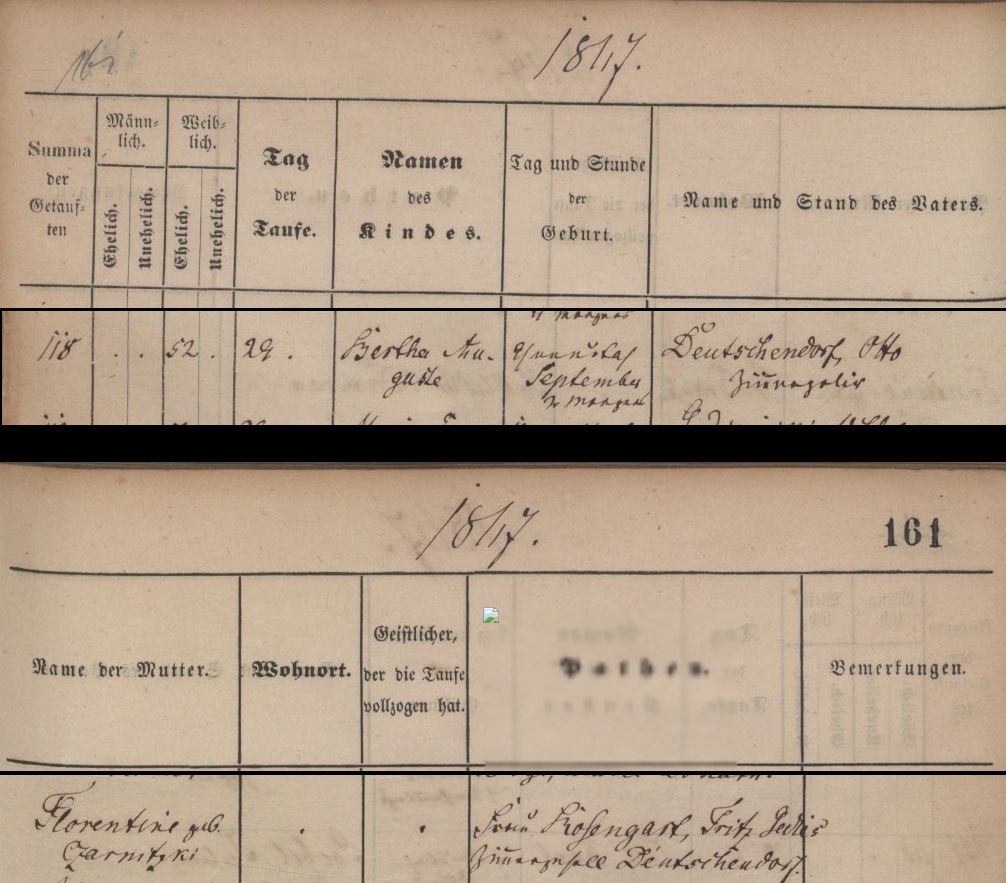 161
1847.
Summa der Getauf-ten
Männ-lich.
Ehelich.
Unehelich.
Weib-lich.
Ehelich.
Unehelich.
Tag der Taufe.
Namen des Kindes.
Tag und Stunde der Geburt.
Name und Stand des Vaters.
118 . . 52 . 29 . Bertha Au- Deutschendorf, Otto
guste September
1847.
161
Name der Mutter.
Wohnort.
Geistlicher, der die Taufe vollzogen hat.
Pathen.
Bemerkungen.
Florentine geb. . . Frau Rosengart, Fritz
Czarnitzki Deutschendorf.